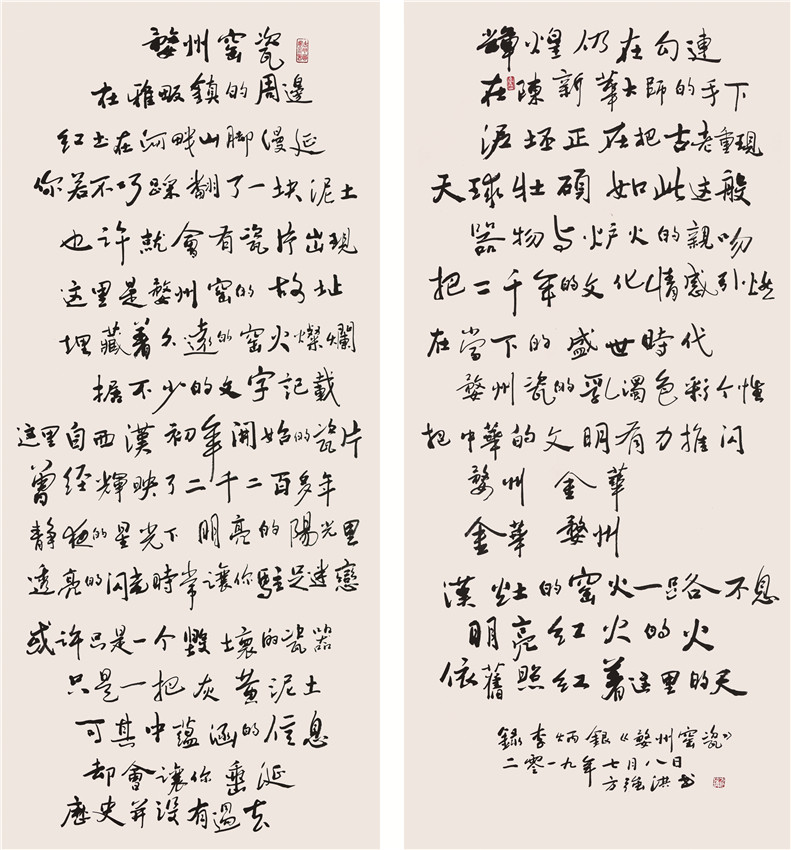 婺州窑瓷
在雅畈鎮的周邊
红土在河畔山脚漫延
你若不巧踩翻了一块泥土
也许就會有瓷片出現
这里是婺州窑的故址
埋藏着久遠的窑火燦爛
据不少的文字記載
这里自西漢初年開始的瓷片
曾经輝映了二千二百多年
静夜的星光下 明亮的陽光里
透亮的闪光時常讓你駐足迷戀
或许只是一个毁壞的瓷器
只是一把灰黄泥土
可其中蕴涵的信息
却會讓你垂涎
歷史并没有過去
輝煌仍在勾連
在陳新華大師的手下
泥坯正在把古老重現
天球壮碩如此这般
器物与炉火的親吻
把二千年的文化情感引燃
在當下的盛世時代
婺州瓷的乳濁色彩个性
把中華的文明有力推闪
婺州 金華
金華 婺州
漢灶的窑火一路不息
明亮红火的火
依舊照红着这里的天
録李炳銀《婺州窑瓷》
二零一九年七月八日
方强洪书